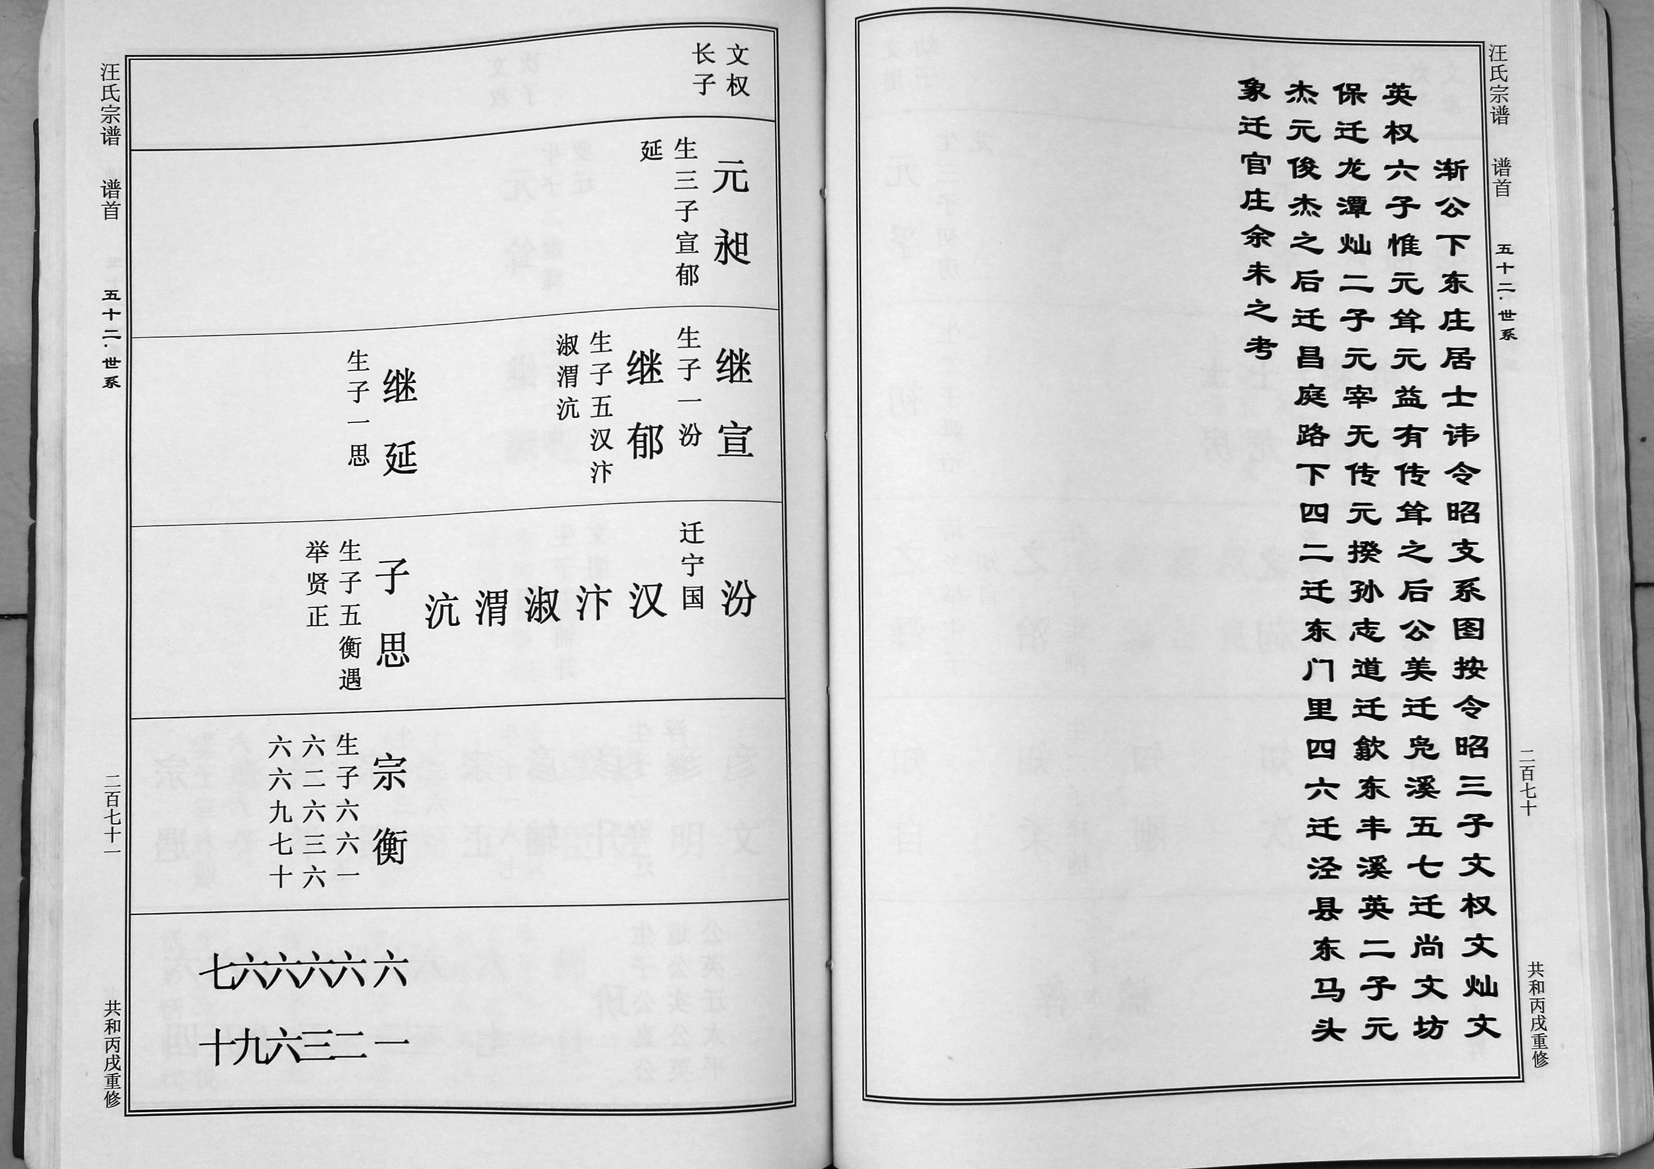 汪氏宗谱 谱首 五十二·世系 二百七十 共和丙戌重修
渐公下东庄居士讳令昭支系图按令昭三子文权文灿文
英权六子惟元耸元益有传耸之后公美迁凫溪五七迁尚文坊
保迁龙潭灿二子元宰无传元揆孙志道迁歙东丰溪英二子元
杰元俊杰之后迁昌庭路下四二迁东门里四六迁泾县东马头
象迁官庄余未之考
文权
长子
元昶
生三子宣郁
延
继宣
生子一汾
继郁
生子五汉汴
淑渭沆
继延
生子一思
汾
迁宁国
汉
汴
淑
渭
沆
子思
生子五衡遇
举贤正
宗衡
生子六六一
六二六三六
六六九七十
六一
六二
六三
六六
六九
七十
汪氏宗谱 谱首 五十二·世系 二百七十一 共和丙戌重修